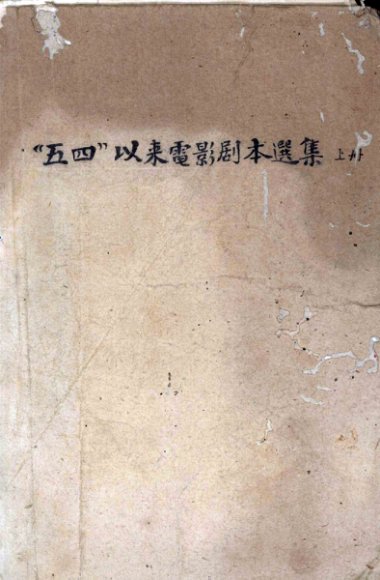 “五四”以来電影剧本選集 上册